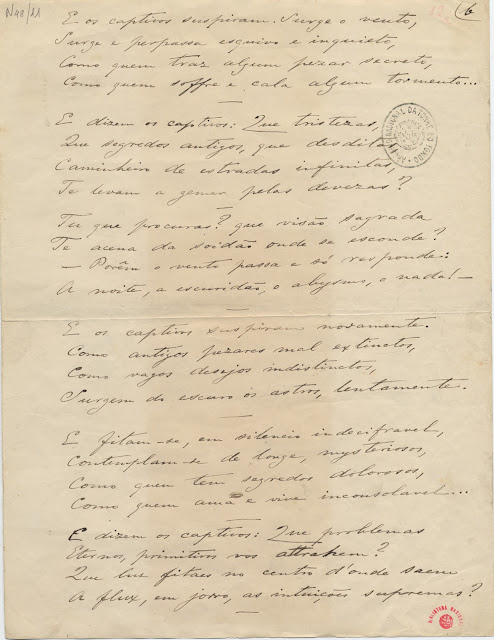 N48/11
6
E os captivos suspiram. Surge o vento,
Surge e perpassa esquivo e inquieto,
Como quem traz algum pezar secreto,
Como quem soffre e cala algum tormento...
E dizem os captivos: Que tristezas,
Que segredos antigos, que desditas,
Caminheiro de estradas infinitas,
Te levam a gemer pelas devezas?
Tu que procuras? que visão sagrada
Te acena da soidão onde se esconde?
— Porêm o vento passa e só responde:
A noite, a escuridão, o abysmo, o nada! —
E os captivos suspiram novamente.
Como antigos pezares mal extinctos,
Como vagos desejos indistinctos,
Surgem do escuro os astros, lentamente.
E fitam-se, em silencio indecifravel,
Contemplam-se de longe, mysteriosos,
Como quem tem segredos dolorosos,
Como quem ama e vive inconsolavel...
E dizem os captivos: Que problemas
Eternos, primitivos vos attrahem?
Que luz fitaes no centro d'onde saem
A flux, em jorro, as intuições supremas?